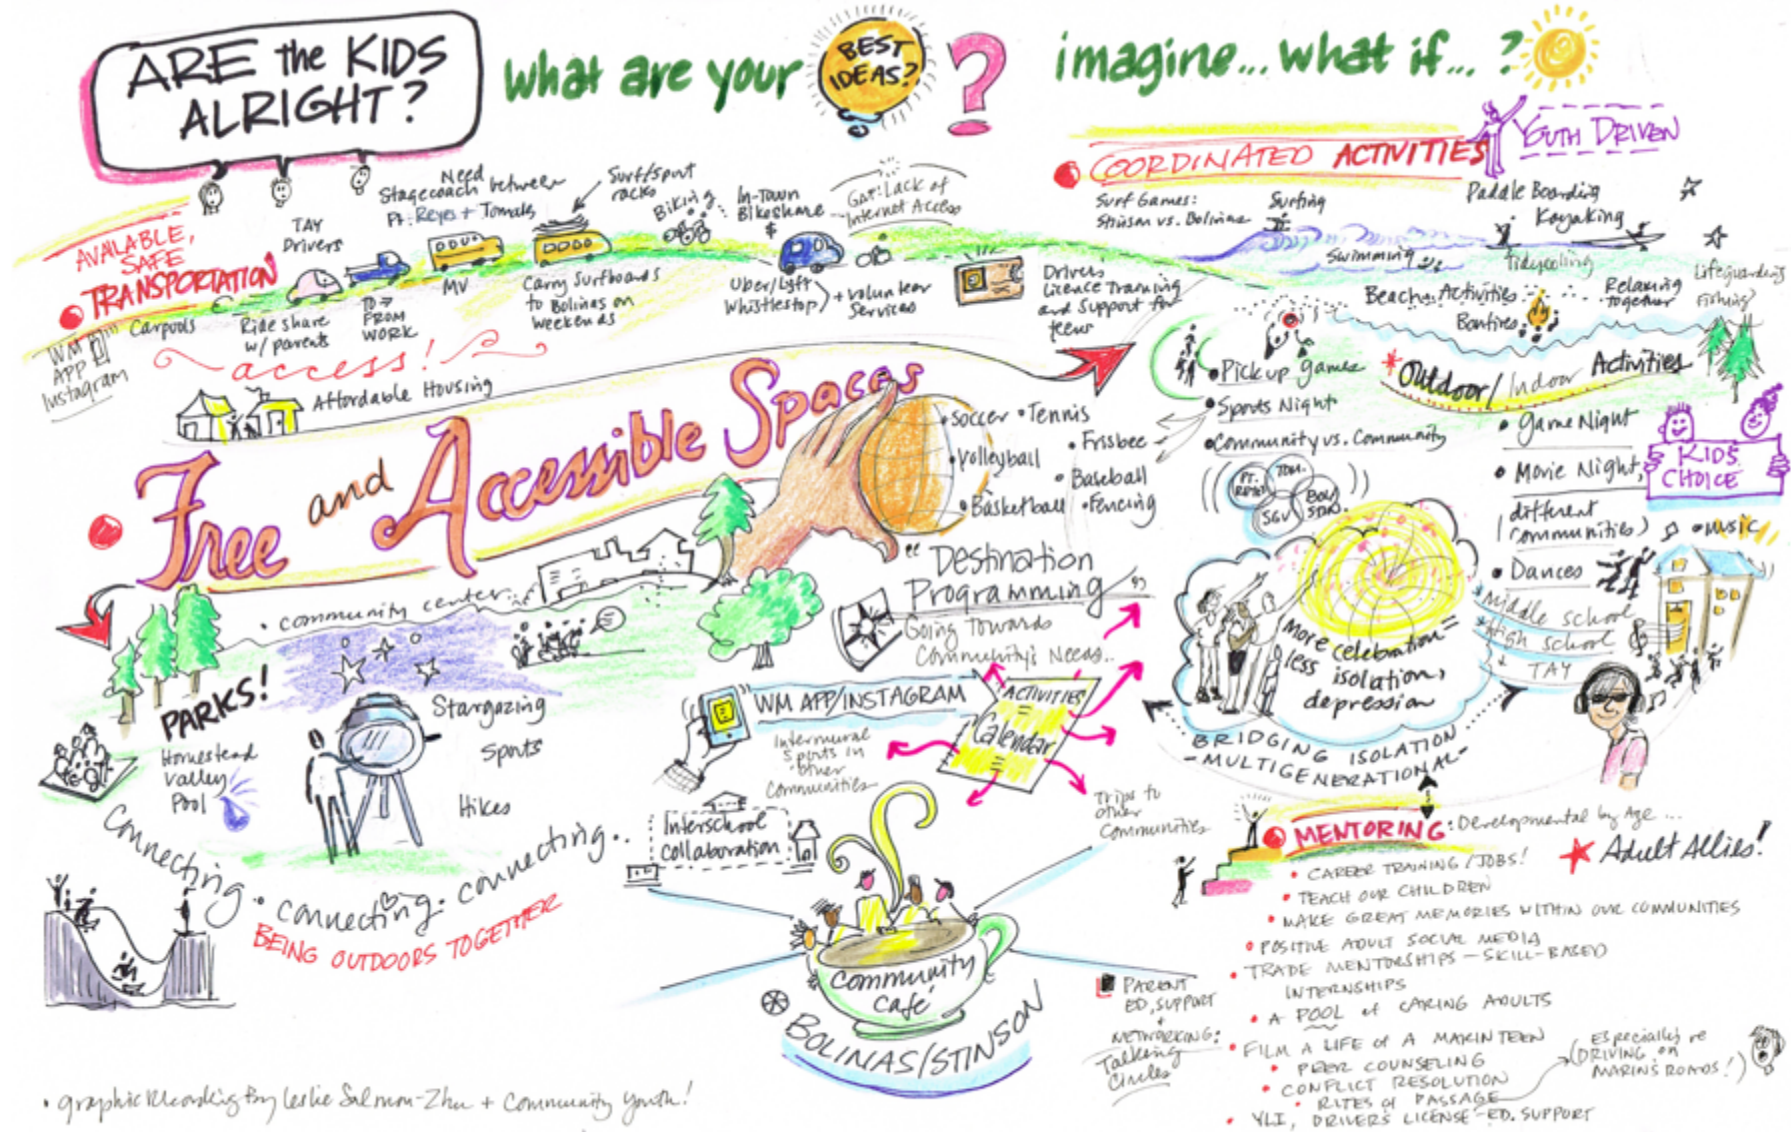 ARE the KIDS
ALRIGHT?
What are your
BEST
IDEAS?
?
imagine... what if... ?
AVAILABLE,
SAFE
TRANSPORTATION
WM
APP
Instagram
Carpools
TAY
Drivers
Ride share
w/ parents
TO →
FROM
WORK
Need
Stagecoach between
Pt. Reyes + Tomales
MV
Surf/sport
racks
Carry Surfboards
to Bolinas on
weekends
Biking
In-Town
Bikeshare
&
Uber/Lyft
Whistlestop
+ volunteer
Services
Gap: Lack of
Internet Access
Drivers
Licence Training
and Support for
teens
access!
Affordable Housing
COORDINATED ACTIVITIES
YOUTH DRIVEN
Surf Games:
Stinson vs. Bolinas
Surfing
Paddle Boarding
Kayaking
Swimming
Tidepooling
Lifeguarding
Fishing
Beach Activities
Bonfires
Relaxing
together
* Outdoor/Indoor Activities
• Pick up games
• Sports Night
• Community vs. Community
PT.
REYES
TOM.
SGV
BOL/
STIN.
• Game Night
• Movie Night,
(different
communities)
• Music
• Dances
KIDS
CHOICE
* Middle school
* High school
+ TAY
Free and Accessible Spaces
• Soccer • Tennis
• Frisbee
• Volleyball
• Baseball
• Basketball • Fencing
• community center
PARKS!
Homestead
Valley
Pool
Stargazing
Sports
Hikes
Connecting • connecting • connecting..
BEING OUTDOORS TOGETHER
"Destination
Programming"
Going Towards
Community's Needs..
WM APP/INSTAGRAM
ACTIVITIES
Calendar
Intermural
Sports in
other
Communities
Trips to
other
Communities
Interschool
Collaboration
Community
Café
BOLINAS/STINSON
PARENT
ED, SUPPORT
+
NETWORKING:
Talking
Circles
More celebration =
less isolation,
depression
BRIDGING ISOLATION
- MULTIGENERATIONAL -
MENTORING: Developmental by Age ...
Adult Allies!
• CAREER TRAINING / JOBS!
• TEACH OUR CHILDREN
• MAKE GREAT MEMORIES WITHIN OUR COMMUNITIES
• POSITIVE ADULT SOCIAL MEDIA
• TRADE MENTORSHIPS - SKILL-BASED
INTERNSHIPS
• A POOL of CARING ADULTS
• FILM A LIFE of A MARIN TEEN
• PEER COUNSELING
• CONFLICT RESOLUTION
• RITES of PASSAGE
(Especially re
DRIVING on
MARIN'S ROADS!)
• YLI, DRIVER'S LICENSE - ED. SUPPORT
• graphic Recording by Leslie Salmon-Zhu + Community Youth!